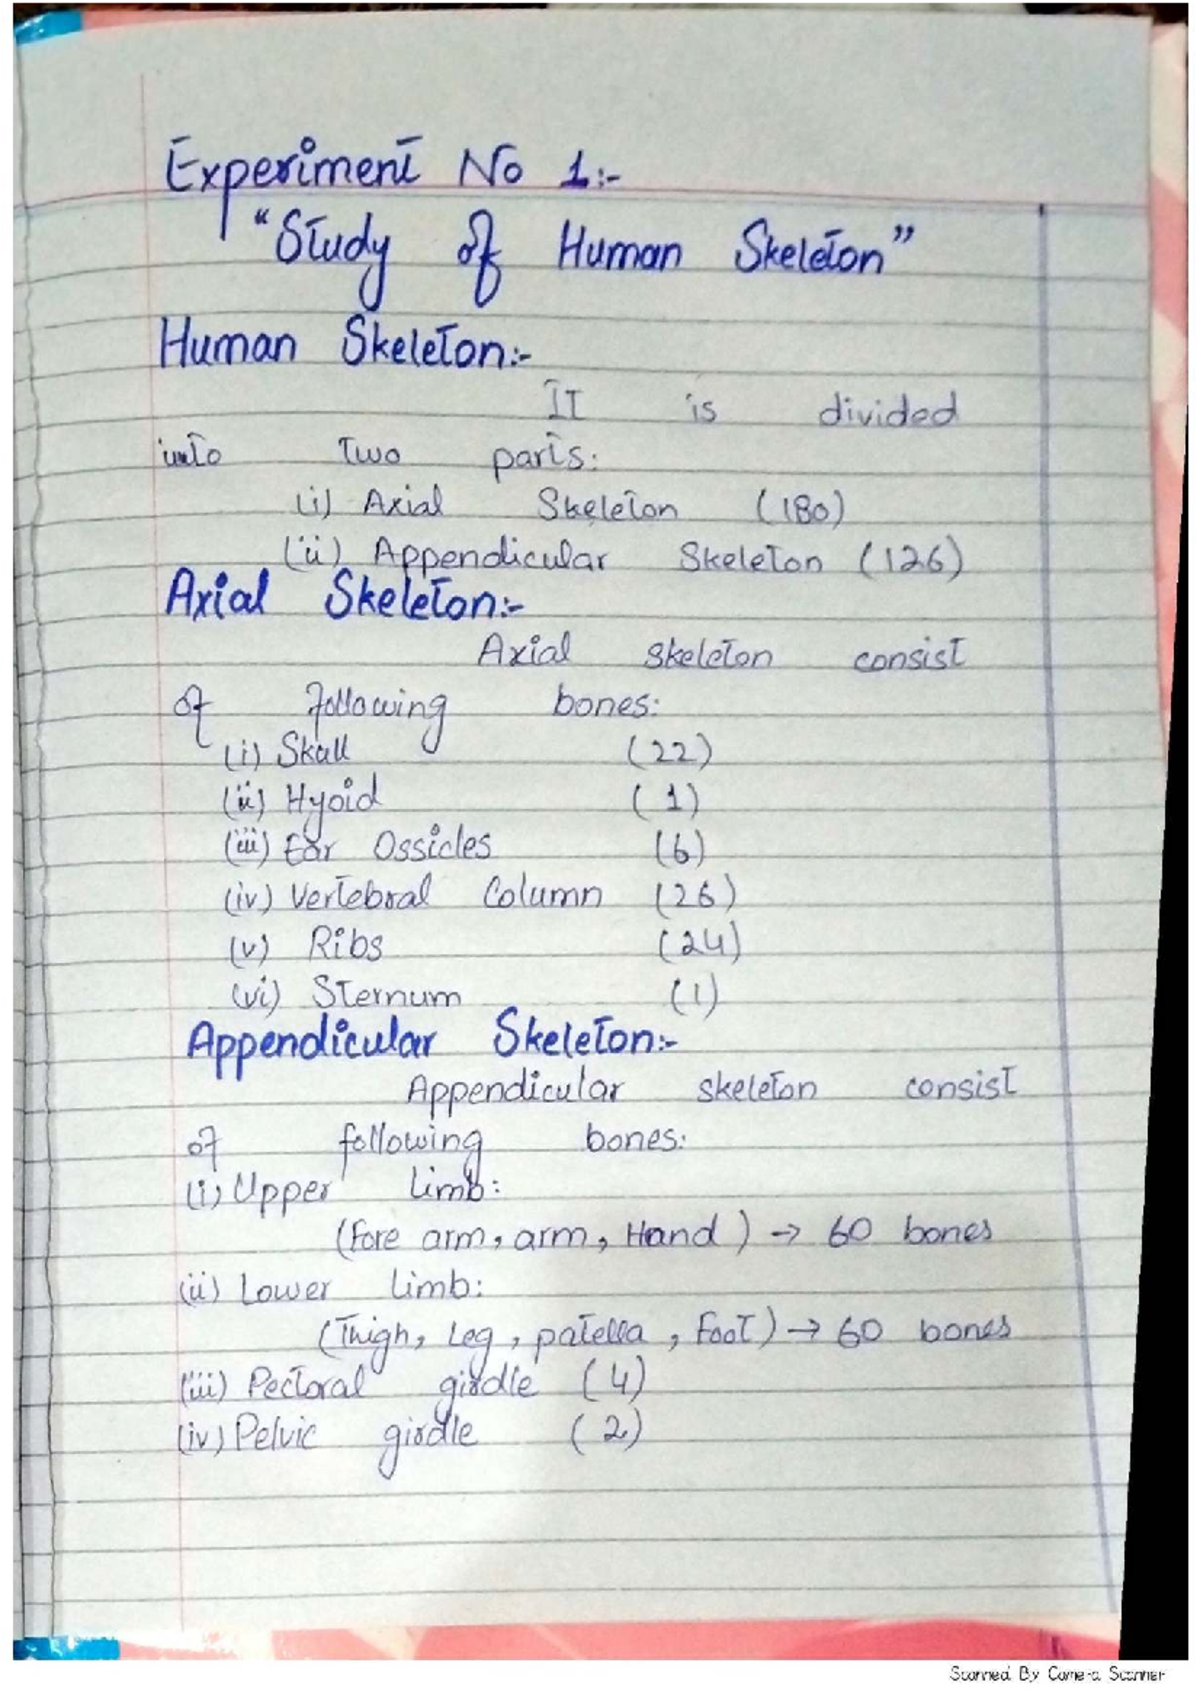 Experiment No 1:-
"Study of Human Skeleton"
Human Skeleton:-
It is divided
into two parts:
(i) Axial Skeleton (180)
(ii) Appendicular Skeleton (126)
Axial Skeleton:-
Axial skeleton consist
of following bones:
(i) Skull (22)
(ii) Hyoid (1)
(iii) Ear Ossicles (6)
(iv) Vertebral Column (26)
(v) Ribs (24)
(vi) Sternum (1)
Appendicular Skeleton:-
Appendicular skeleton consist
of following bones:
(i) Upper limb:
(Fore arm, arm, Hand) → 60 bones
(ii) Lower limb:
(Thigh, Leg, patella, Foot) → 60 bones
(iii) Pectoral girdle (4)
(iv) Pelvic girdle (2)
Scanned By Camera Scanner